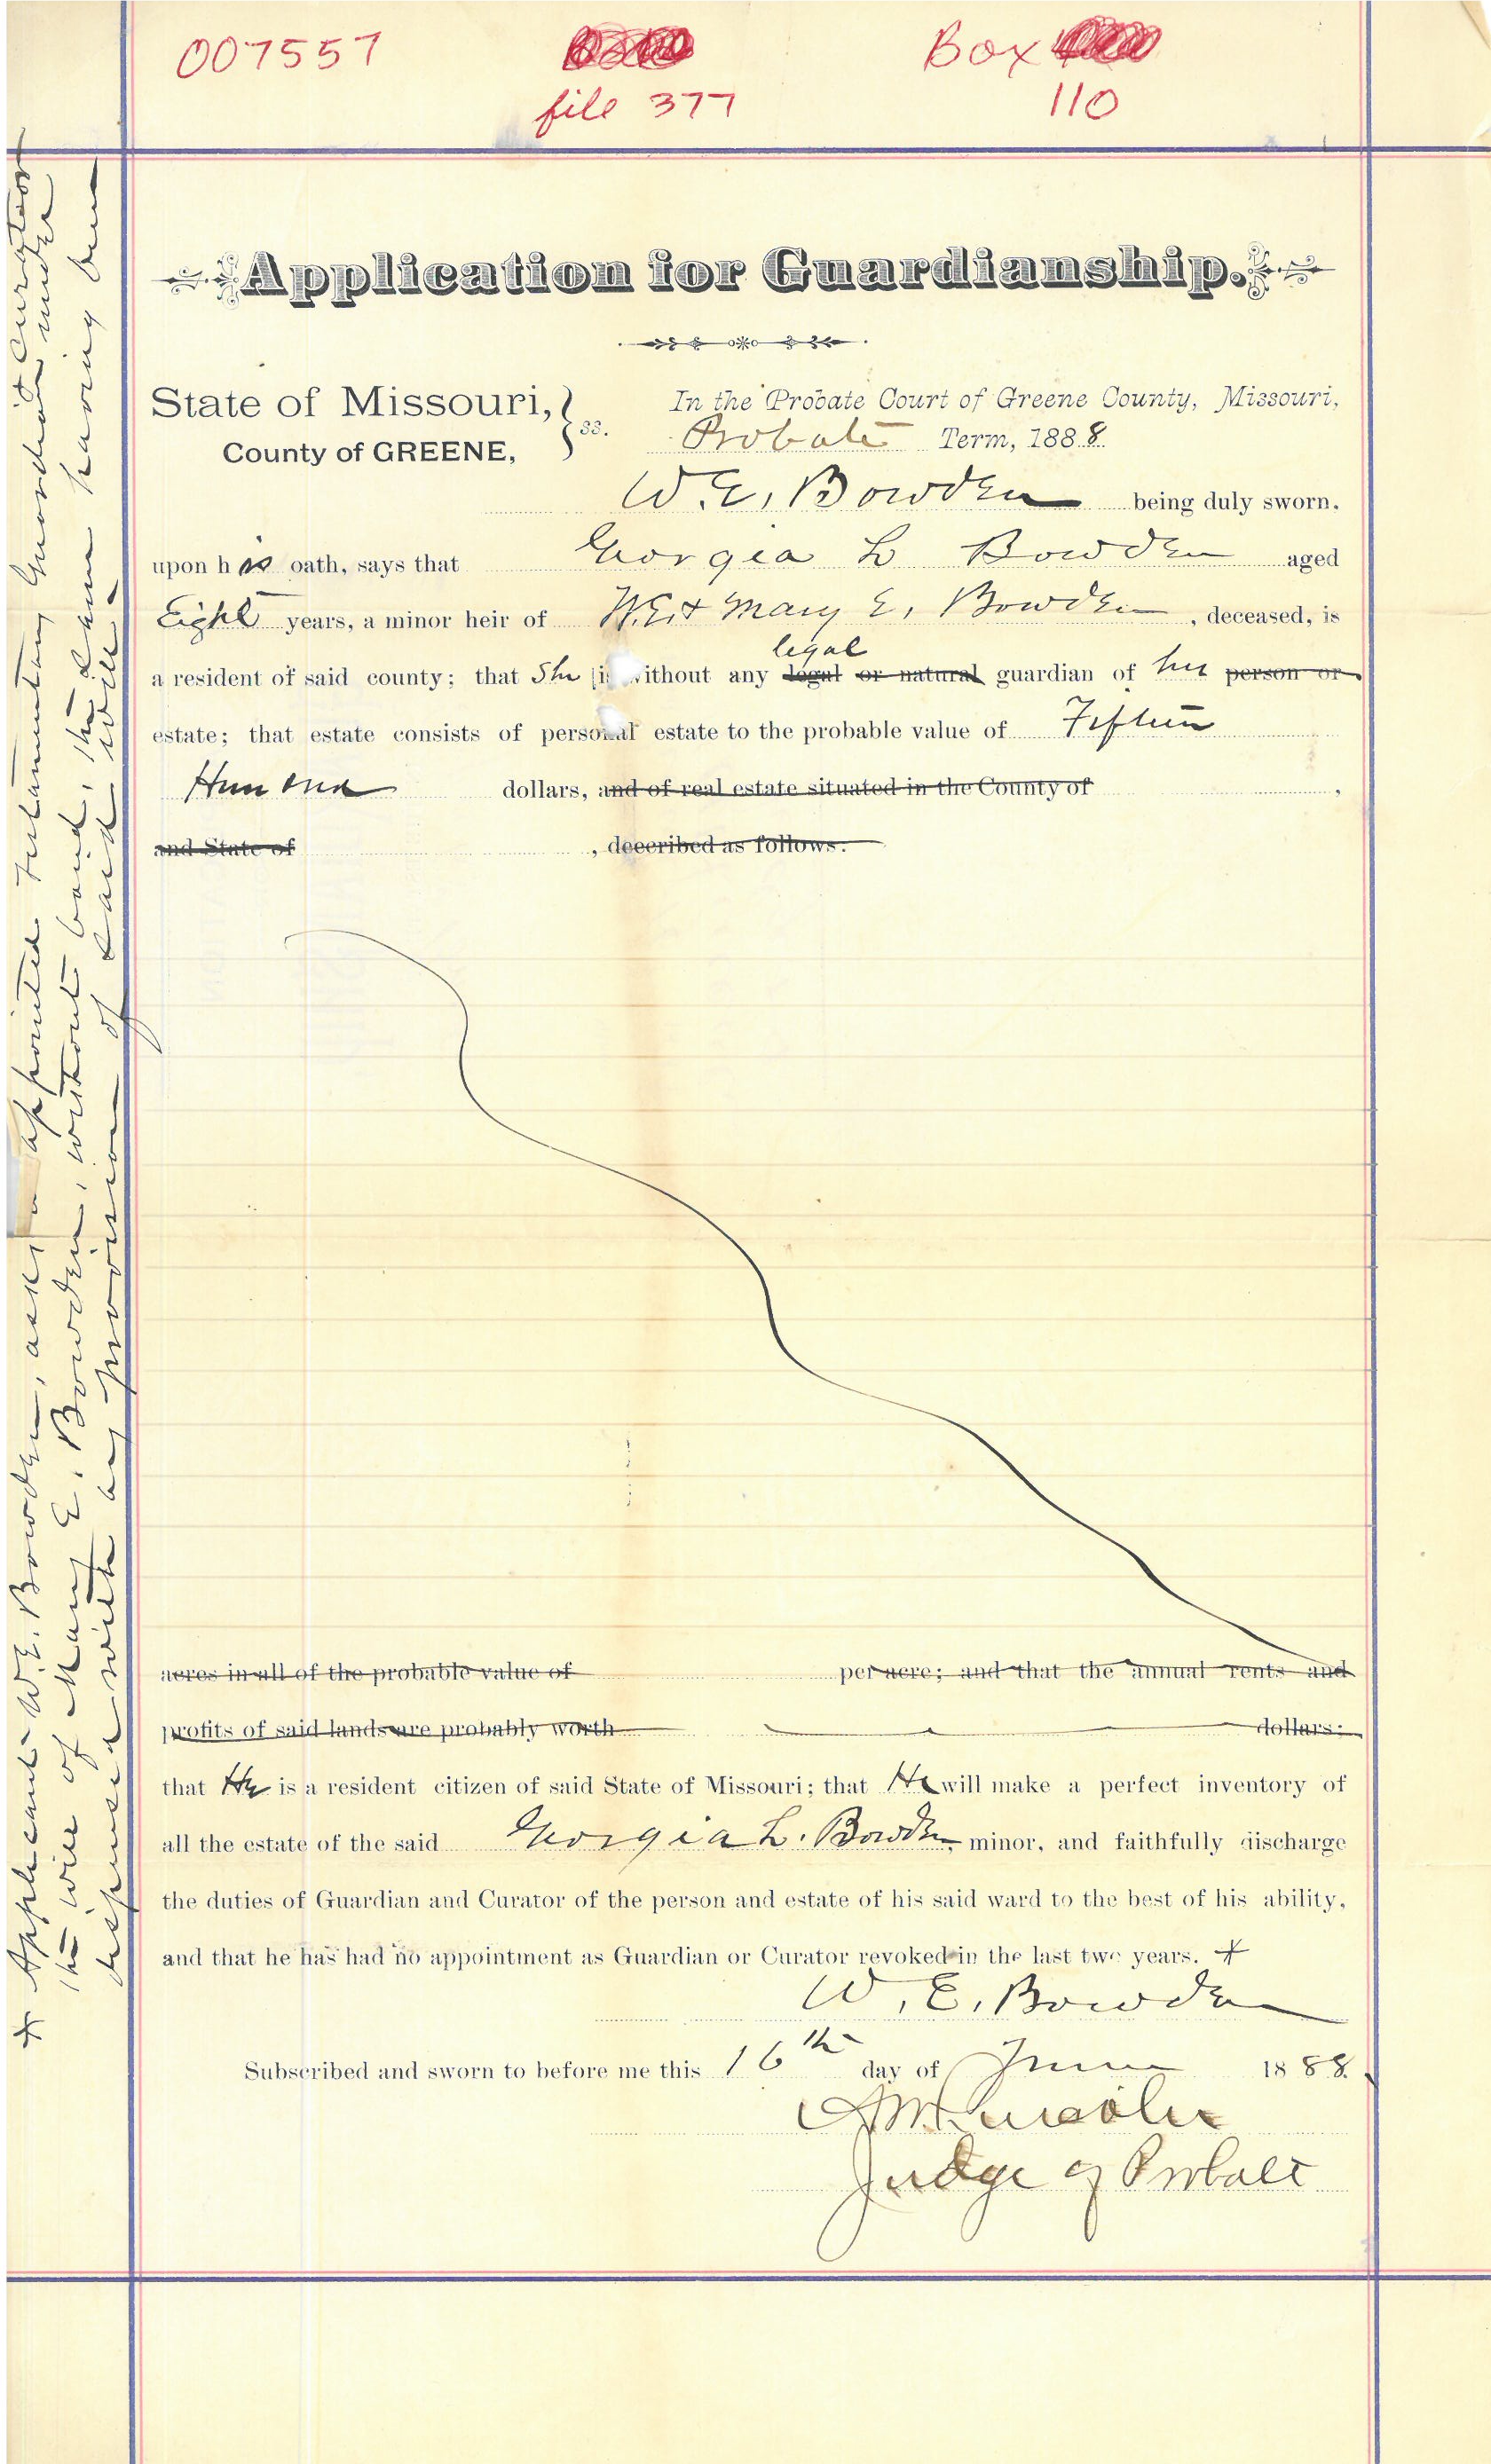 007557
file 377
Box
110
Application for Guardianship.
State of Missouri,
County of GREENE,
ss.
In the Probate Court of Greene County, Missouri,
Probate Term, 1888.
W. E. Bowden being duly sworn,
upon his oath, says that Georgia L Bowden aged
Eight years, a minor heir of W.E. & Mary E. Bowden, deceased, is
legal
a resident of said county; that She is without any legal or natural guardian of her person or
estate; that estate consists of personal estate to the probable value of Fifteen
Hundred dollars, and of real estate situated in the County of ,
and State of , described as follows:
acres in all of the probable value of per acre; and that the annual rents and
profits of said lands are probably worth dollars:
that He is a resident citizen of said State of Missouri; that He will make a perfect inventory of
all the estate of the said Georgia L. Bowden, minor, and faithfully discharge
the duties of Guardian and Curator of the person and estate of his said ward to the best of his ability,
and that he has had no appointment as Guardian or Curator revoked in the last two years. +
W. E. Bowden
Subscribed and sworn to before me this 16th day of June 1888.
Judge of Probate
+ Applicant W.E. Bowden, asks appointed Testamentary Guardian & Curator under
the will of Mary E. Bowden, without bond, the same having been
dispensed with by provision of said will.